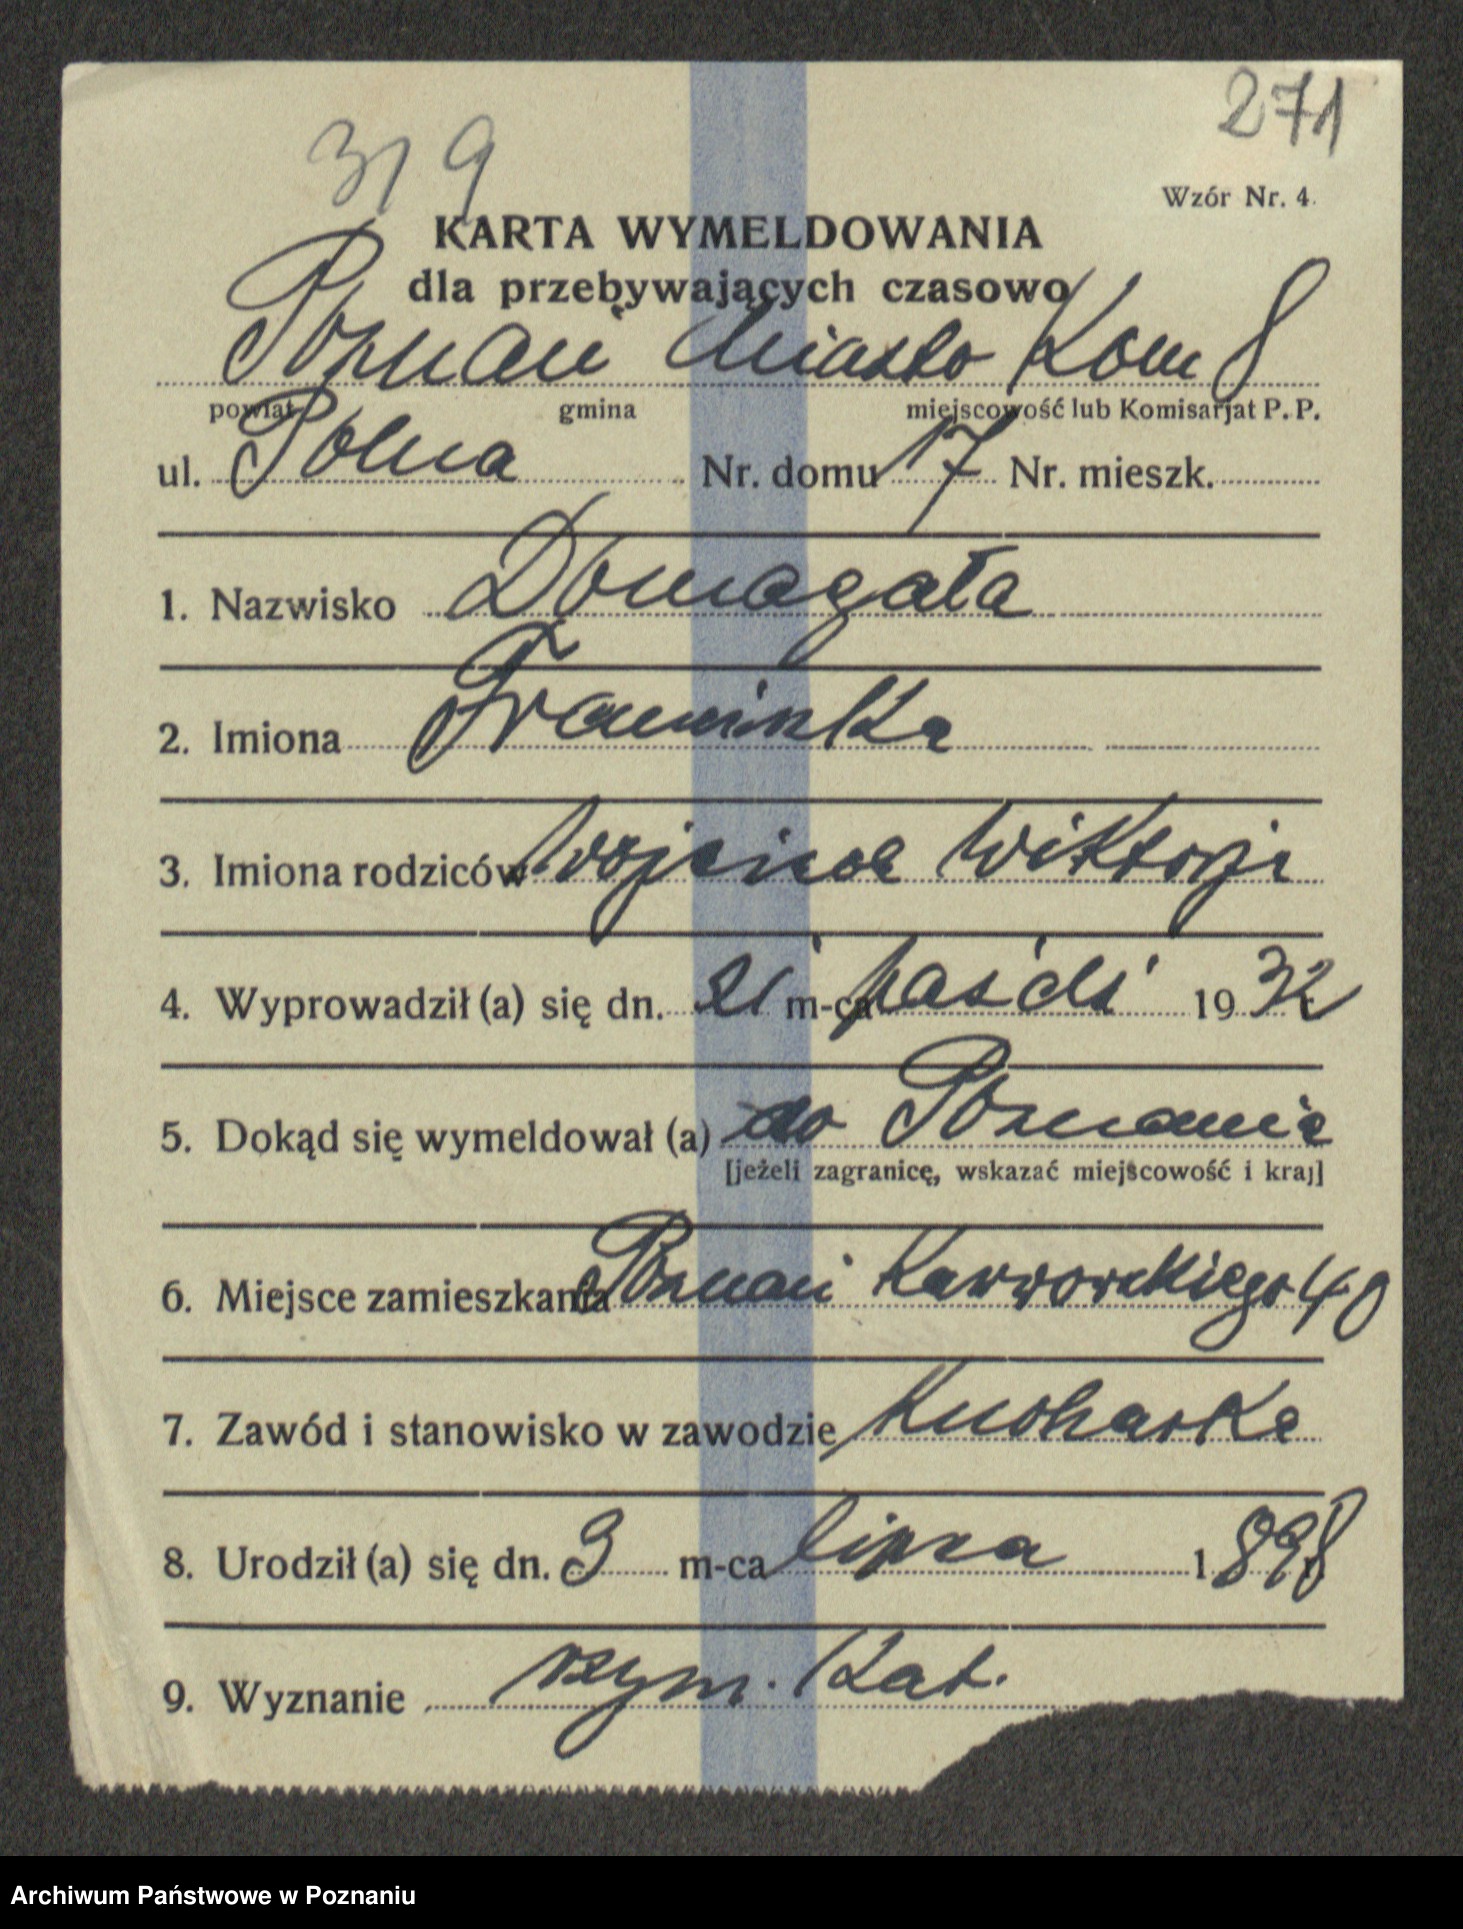 271
319
Wzór Nr. 4.
KARTA WYMELDOWANIA
dla przebywających czasowo
Poznań Miasto Kom 8
powiat gmina miejscowość lub Komisarjat P. P.
ul. Polna Nr. domu 17 Nr. mieszk.
1. Nazwisko Domagała
2. Imiona
3. Imiona rodziców Wiktorji
4. Wyprowadził (a) się dn. 21 m-ca paźdź 1932
5. Dokąd się wymeldował (a) do Poznania
[jeżeli zagranicę, wskazać miejscowość i kraj]
6. Miejsce zamieszkania Poznań 40
7. Zawód i stanowisko w zawodzie Kucharka
8. Urodził (a) się dn. 3 m-ca lipca 1898
9. Wyznanie rzym. Kat.
Archiwum Państwowe w Poznaniu